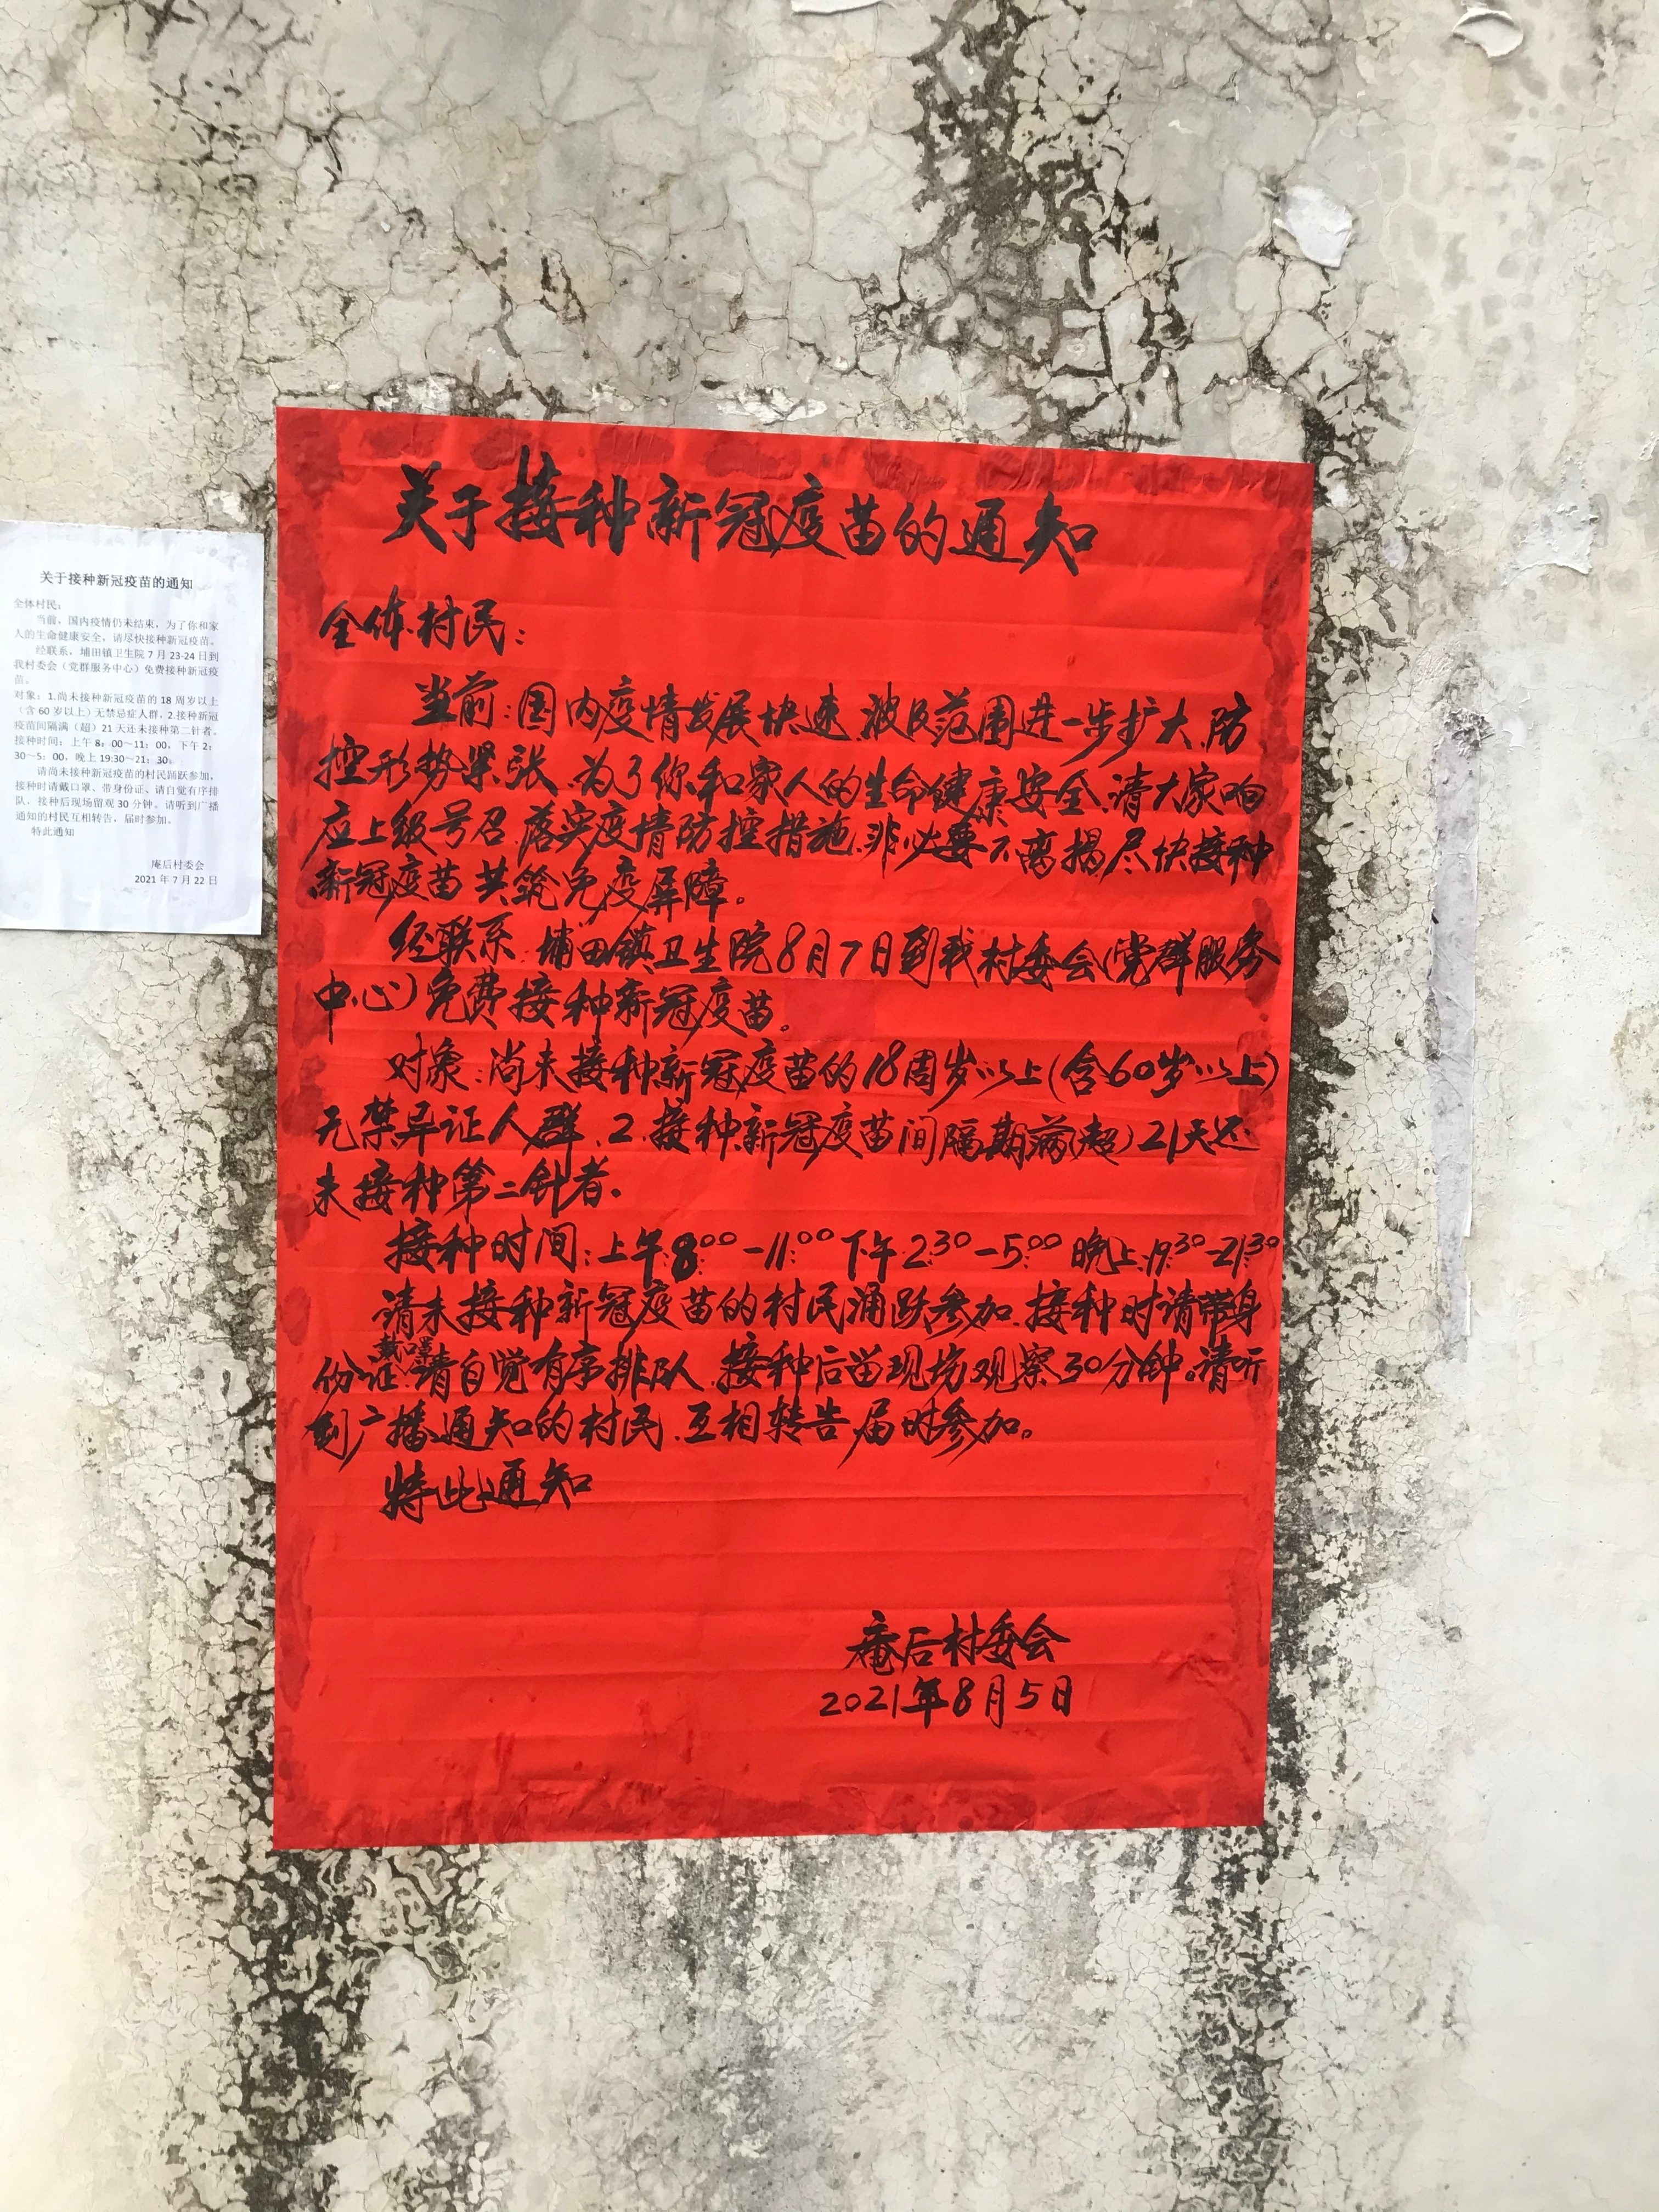 关于接种新冠疫苗的通知
全体村民：
当前，国内疫情仍未结束，为了你和家
人的生命健康安全，请尽快接种新冠疫苗。
经联系，埔田镇卫生院7月23-24日到
我村委会（党群服务中心）免费接种新冠疫
苗。
对象：1.尚未接种新冠疫苗的18周岁以上
（含60岁以上）无禁忌症人群，2.接种新冠
疫苗间隔满（超）21天还未接种第二针者。
接种时间：上午8：00～11：00，下午2：
30～5：00，晚上19:30～21：30。
请尚未接种新冠疫苗的村民踊跃参加，
接种时请戴口罩、带身份证、请自觉有序排
队，接种后现场留观30分钟。请听到广播
通知的村民互相转告，届时参加。
特此通知
庵后村委会
2021年7月22日
关于接种新冠疫苗的通知
全体村民：
当前：国内疫情发展快速、波及范围进一步扩大、防
控形势紧张、为了你和家人的生命健康安全、请大家响
应上级号召、落实疫情防控措施、非必要不离揭、尽快接种
新冠疫苗、共筑免疫屏障。
经联系、埔田镇卫生院8月7日到我村委会(党群服务
中心)免费接种新冠疫苗。
对象：尚未接种新冠疫苗的18周岁以上(含60岁以上)
无禁忌证人群、2、接种新冠疫苗间隔期满(超)21天还
未接种第二针者.
接种时间：上午:8:00-11:00下午:2:30-5:00 晚上:19:30-21:30
请未接种新冠疫苗的村民涌跃参加、接种时请带身
份证、戴口罩、请自觉有序排队、接种后苗现场观察30分钟。请听
到广播通知的村民、互相转告、届时参加。
特此通知
庵后村委会
2021年8月5日